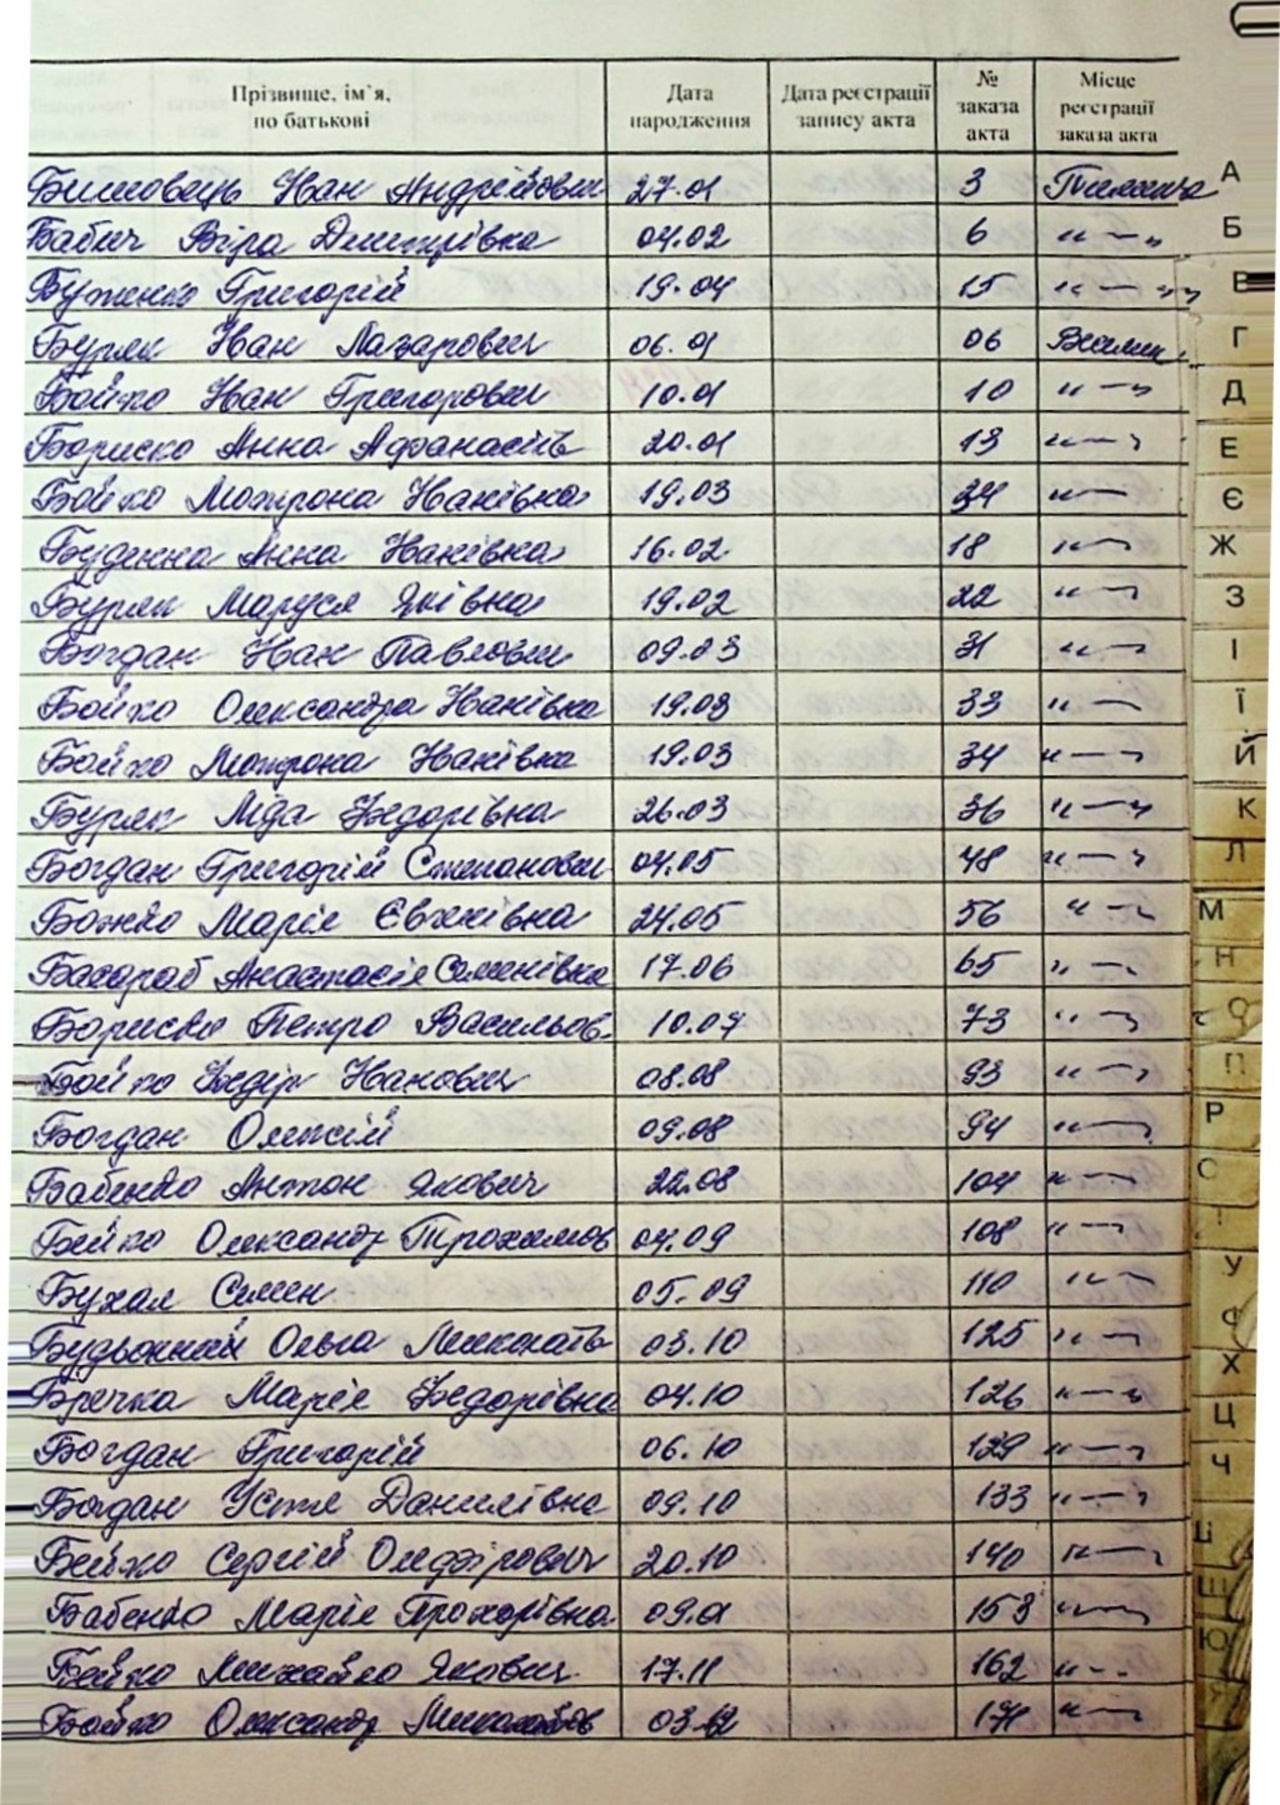 Прізвище, ім'я, по батькові Дата народження Дата реєстрації запису акта № заказа акта Місце реєстрації заказа акта
Іван Андрійович 27.01 3 А
Бабич Віра Дмитрівна 04.02 6 " — " Б
Буженко Григорій 19.04 15 " — " В
Буряк Іван Лазарович 06.01 06 Г
Бойко Іван Григорович 10.01 10 " — " Д
Бориско Анна Афанасіїв 20.01 13 " — " Е
Бойко Мотрона Іванівна 19.03 34 " — " Є
Буденна Анна Іванівна 16.02 18 " — " Ж
Буряк Маруся Яківна 19.02 22 " — " З
Богдан Іван Павлович 09.03 31 " — " І
Бойко Олександра Іванівна 19.03 33 " — " Ї
Бойко Мотрона Іванівна 19.03 34 " — " Й
Буряк Ліда Федорівна 26.03 36 " — " К
Богдан Григорій Степанович 04.05 48 " — " Л
Божко Марія Євгенівна 24.05 56 " — " М
Басараб Анастасія Семенівна 17.06 65 " — " Н
Бориско Петро Васильов. 10.07 73 " — " О
Бойко Федір Іванович 08.08 93 " — " П
Богдан Олексій 09.08 94 " — " Р
Бабенко Антон Якович 22.08 104 " — " С
Бойко Олександр Трохимов 04.09 108 " — "
Бухал Семен 05.09 110 " — " У
Ольга 03.10 125 " — " Ф
Бречка Марія Федорівна 04.10 126 " — " Х
Богдан Григорій 06.10 129 " — " Ц
Богдан Устя Данилівна 09.10 133 " — " Ч
Бойко Сергій 20.10 140 " — " Ш
Бабенко Марія Прохорівна 153 " — " Щ
Бойко Михайло Якович 17.11 162 " — " Ю
Бойко Олександр 03.12 171 " — " Я